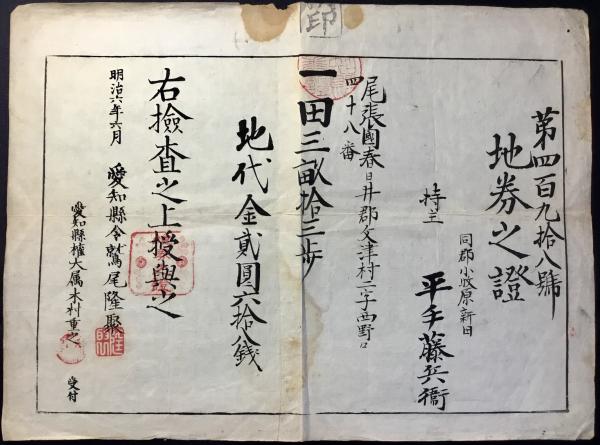 第四百九拾八號
地券之證
同郡小牧原新田
持主 平手藤兵衛
尾張國春日井郡文津村二字西野口
四十八番
一田三畝拾三歩
地代金貳圓六拾八銭
右撿査之上授與之
明治六年六月 愛知縣令鷲尾隆聚
愛知縣権大属木村重之 受付